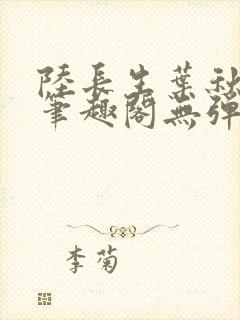 陸長生葉秋
筆趣閣無彈
李菊